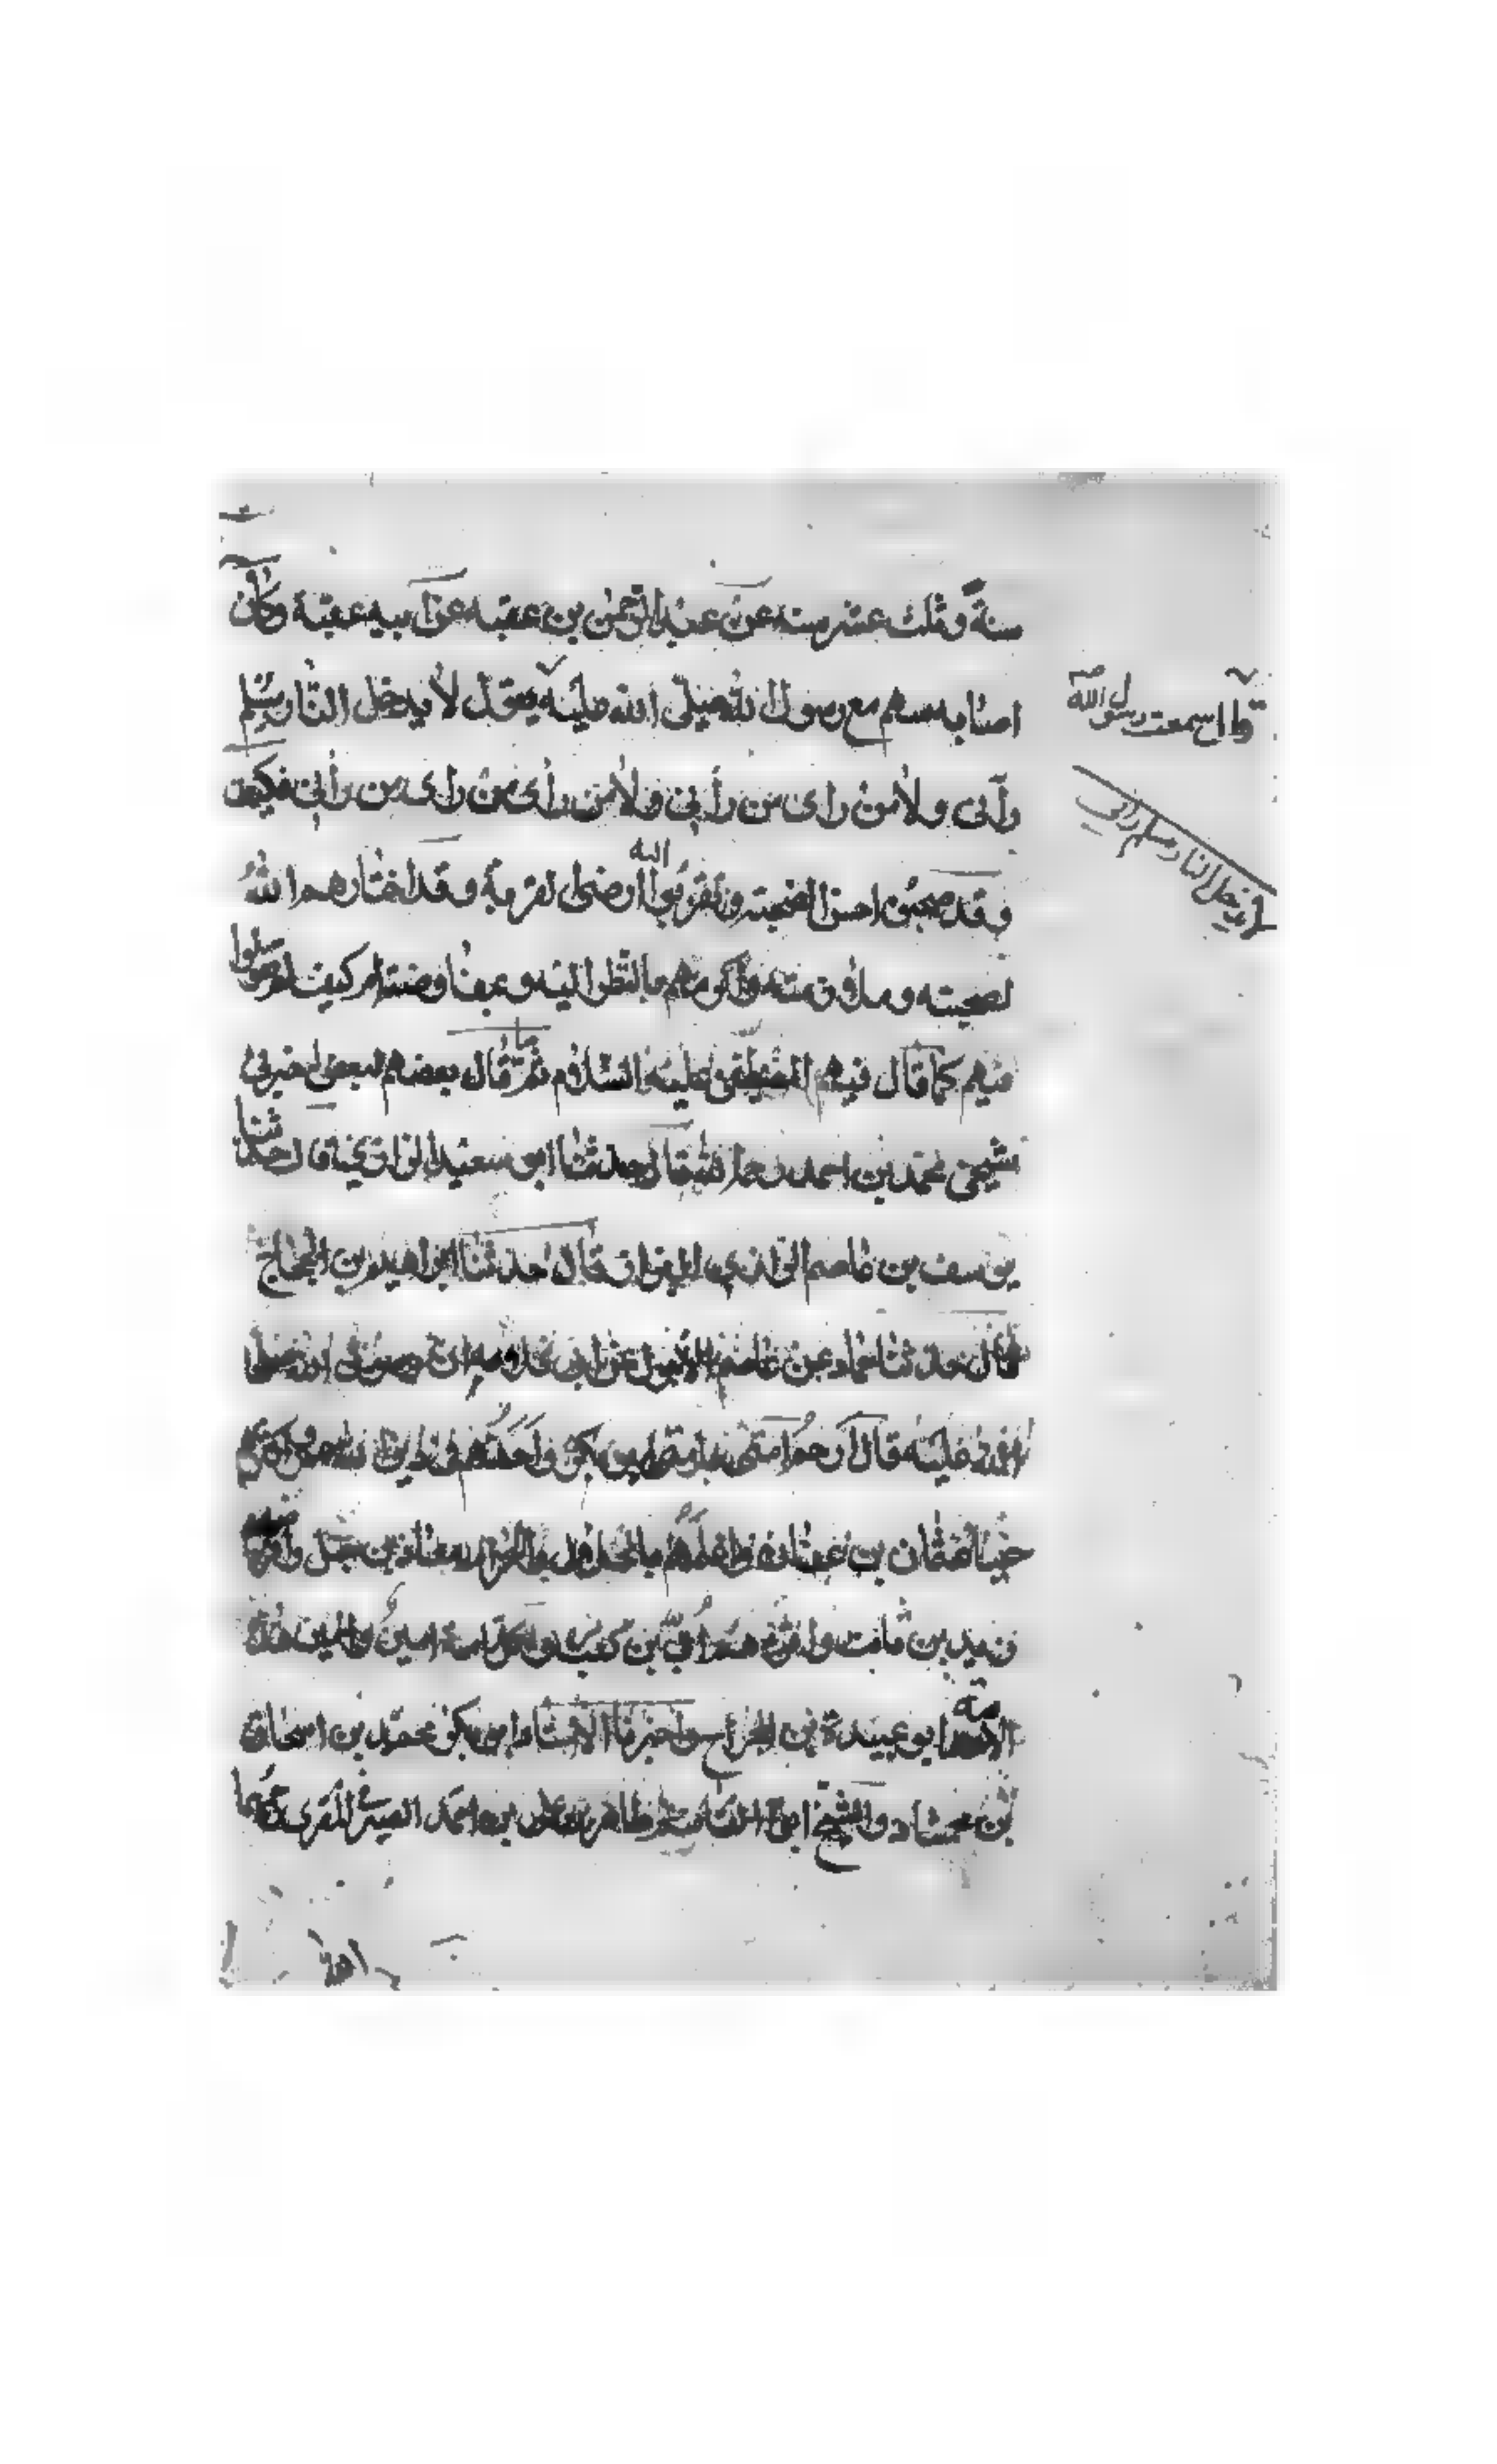 سنةً وثلث عشر سنه عن عبد الرحمن بن عقبه عن ابيه عقبة وكان
اصابه سهم مع رسول الله صلى الله عليه يقول لا يدخل النار مسلم
رآنى ولا من راى من رأنى ولا من رأى من راى من رأنى فكيف
وقد صحبوه احسن الصحبته وتقربوا الى الله ارضى القربة وقد اختارهم الله
لصحبته واكرمهم بالنظر اليه كيف
فيهم كما قال فيهم المصطفى عليه السلام ثم قال بعضهم لبعض اخبرنى
شيخى محمد بن احمد رحمه الله قال حدثنا ابو سعيد الرازى قال حدثنا
يوسف بن عاصم الرازى قال حدثنا ابراهيم بن الحجاج
قال حدثنا حماد عن عاصم الاحول عن ابى قلابه ان رسول الله صلى
الله عليه قال ارحم امتى بامتى ابو بكر واشدهم فى دين الله
حياء عثمان بن عفان واعلمهم بالحلال والحرام معاذ بن جبل وافرضها
زيد بن ثابت واقرؤهم ابى بن كعب ولكل امة امين وامين هذه
الامة ابو عبيدة بن الجراح واخبرنا الاستاد ابو بكر محمد بن اسحاق
بن محمشاد والشيخ ابو القاسم طاهر بن على بن احمد الصيرفى المقرى
قال سمعت رسول الله
لا يدخل النار مسلم رانى